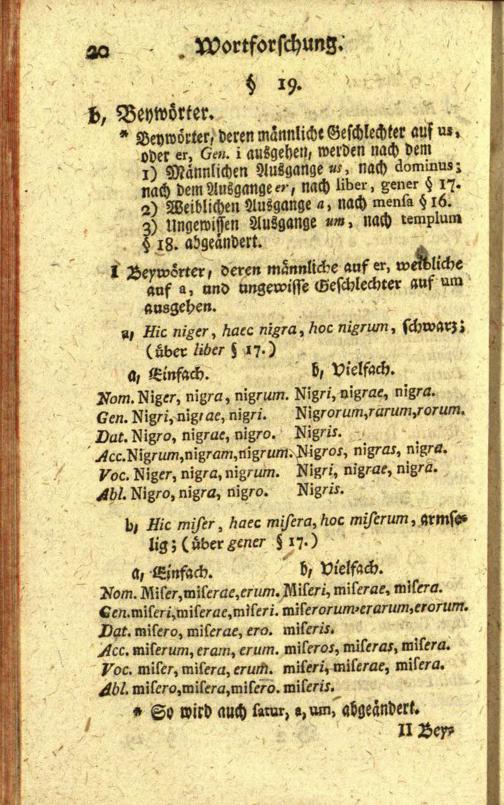 20 Wortforschung.
§ 19.
b, Beywörter.
* Beywörter, deren männliche Geschlechter auf us,
oder er, Gen. i ausgehen, werden nach dem
1) Männlichen Ausgange us, nach dominus;
nach dem Ausgange er, nach liber, gener § 17.
2) Weiblichen Ausgange a, nach mensa § 16.
3) Ungewissen Ausgange um, nach templum
§ 18. abgeändert.
I Beywörter, deren männliche auf er, weibliche
auf a, und ungewisse Geschlechter auf um
ausgehen.
a, Hic niger, haec nigra, hoc nigrum, schwarz;
(über liber § 17.)
a, Einfach. b, Vielfach.
Nom. Niger, nigra, nigrum. Nigri, nigrae, nigra.
Gen. Nigri, nigrae, nigri. Nigrorum,rarum,rorum.
Dat. Nigro, nigrae, nigro. Nigris.
Acc.Nigrum,nigram,nigrum. Nigros, nigras, nigra.
Voc. Niger, nigra, nigrum. Nigri, nigrae, nigra.
Abl. Nigro, nigra, nigro. Nigris.
b, Hic miser, haec misera, hoc miserum, armse-
lig; (über gener § 17.)
a, Einfach. b, Vielfach.
Nom. Miser,miserae,erum. Miseri, miserae, misera.
Gen.miseri,miserae,miseri. miserorum,erarum,erorum.
Dat. misero, miserae, ero. miseris.
Acc. miserum, eram, erum. miseros, miseras, misera.
Voc. miser, misera, erum. miseri, miserae, misera.
Abl. misero,misera,misero. miseris.
* So wird auch satur, a, um, abgeändert.
II Bey-